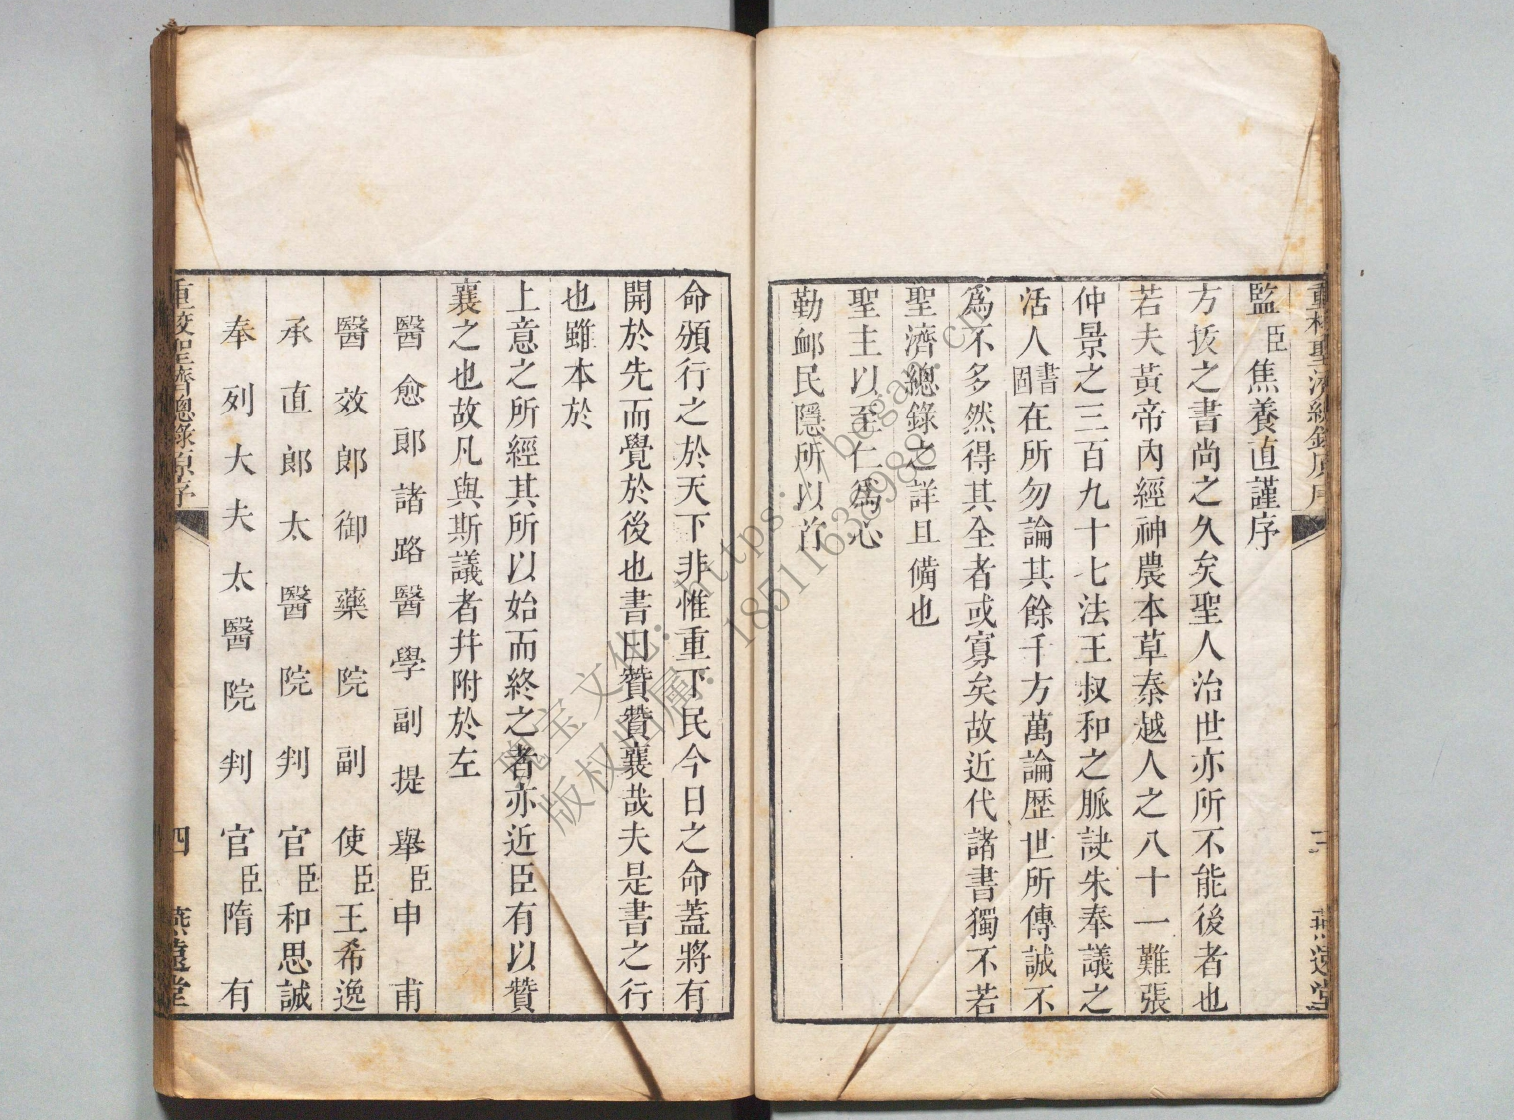 監臣焦養直謹序
方技之書尚之久矣聖人治世亦所不能後者也
若夫黃帝內經神農本草秦越人之八十一難張
仲景之三百九十七法王叔和之脈訣朱奉議之
活人書固在所勿論其餘千方萬論歷世所傳誠不
爲不多然得其全者或寡矣故近代諸書獨不若
聖濟總錄之詳且備也
聖主以至仁爲心
勤邺民隱所以首
命頒行之於天下非惟重下民今日之命蓋將有
開於先而覺於後也書曰贊贊襄哉夫是書之行
也雖本於
上意之所經其所以始而終之者亦近臣有以贊
襄之也故凡與斯議者幷附於左
醫愈郎諸路醫學副提舉臣申甫
醫效郎御藥院副使臣王希逸
承直郎太醫院判官臣和思誠
奉列大夫太醫院判官臣隋有
重校聖濟總錄原序
四
燕遠堂
https://bcgap.cn
18511638988
瑰宝文化:
版权归属: